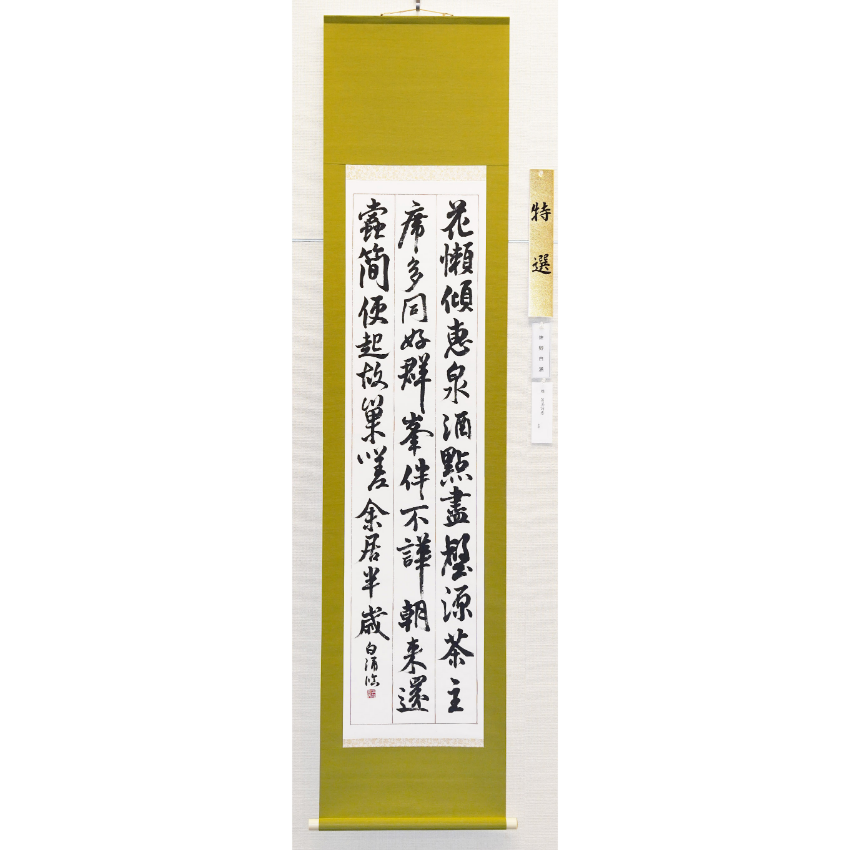 花懶傾惠泉酒點盡壑源茶主
席多同好群峯伴不譁朝来還
蠹簡便起故巢嗟余居半歳
臨
特選